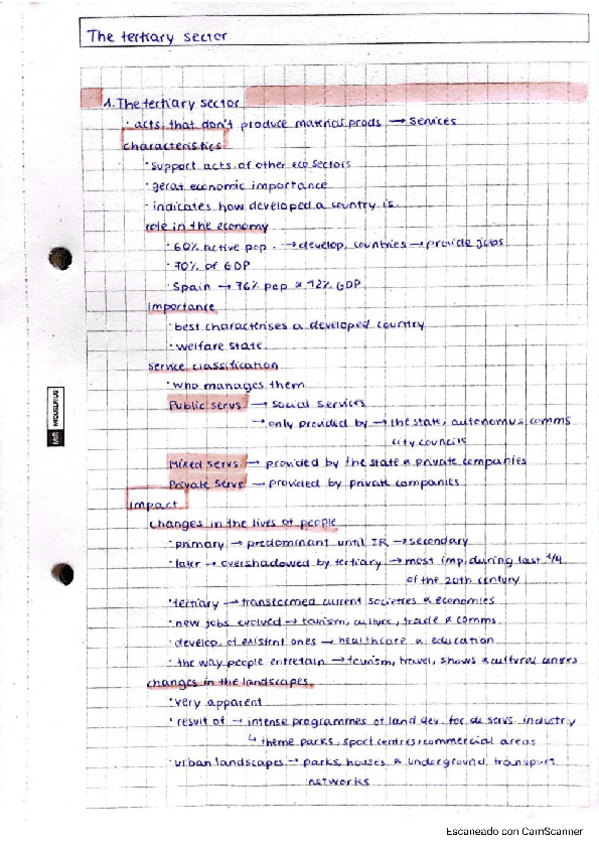 The tertiary sector
1. The tertiary sector
· acts. that don't produce material prods → services
characteristics
· support acts. of other eco sectors
· gerat economic importance
· indicates how developed a country is.
role in the economy
· 60% active pop. → develop. countries → provide jobs
· 70% of GDP
· Spain → 76% pop & 72% GDP
importance
· best characterises a developed country
· welfare state.
service classification
· who manages them
Public servs → social services
→ only provided by → the state, autonomus comms
city councils
Mixed servs. → provided by the state & private companies
Private servs → provided by private companies
Impact
changes in the lives of people
· primary → predominant until IR → secondary
· later → overshadowed by tertiary → most imp. during last 1/4
of the 20th century
· tertiary → transformed current societies & economies
· new jobs evolved → tourism, culture, trade & comms.
· develop. of existent ones → healthcare & education
· the way people entretain → tourism, travel, shows & cultural centres
changes in the landscapes
· very apparent
· result of → intense programmes of land dev. for servs. industry
↳ theme parks, sport centres, commercial areas
· urban landscapes → parks, houses & underground, transport
networks
MIQUELRIUS
Escaneado con CamScanner